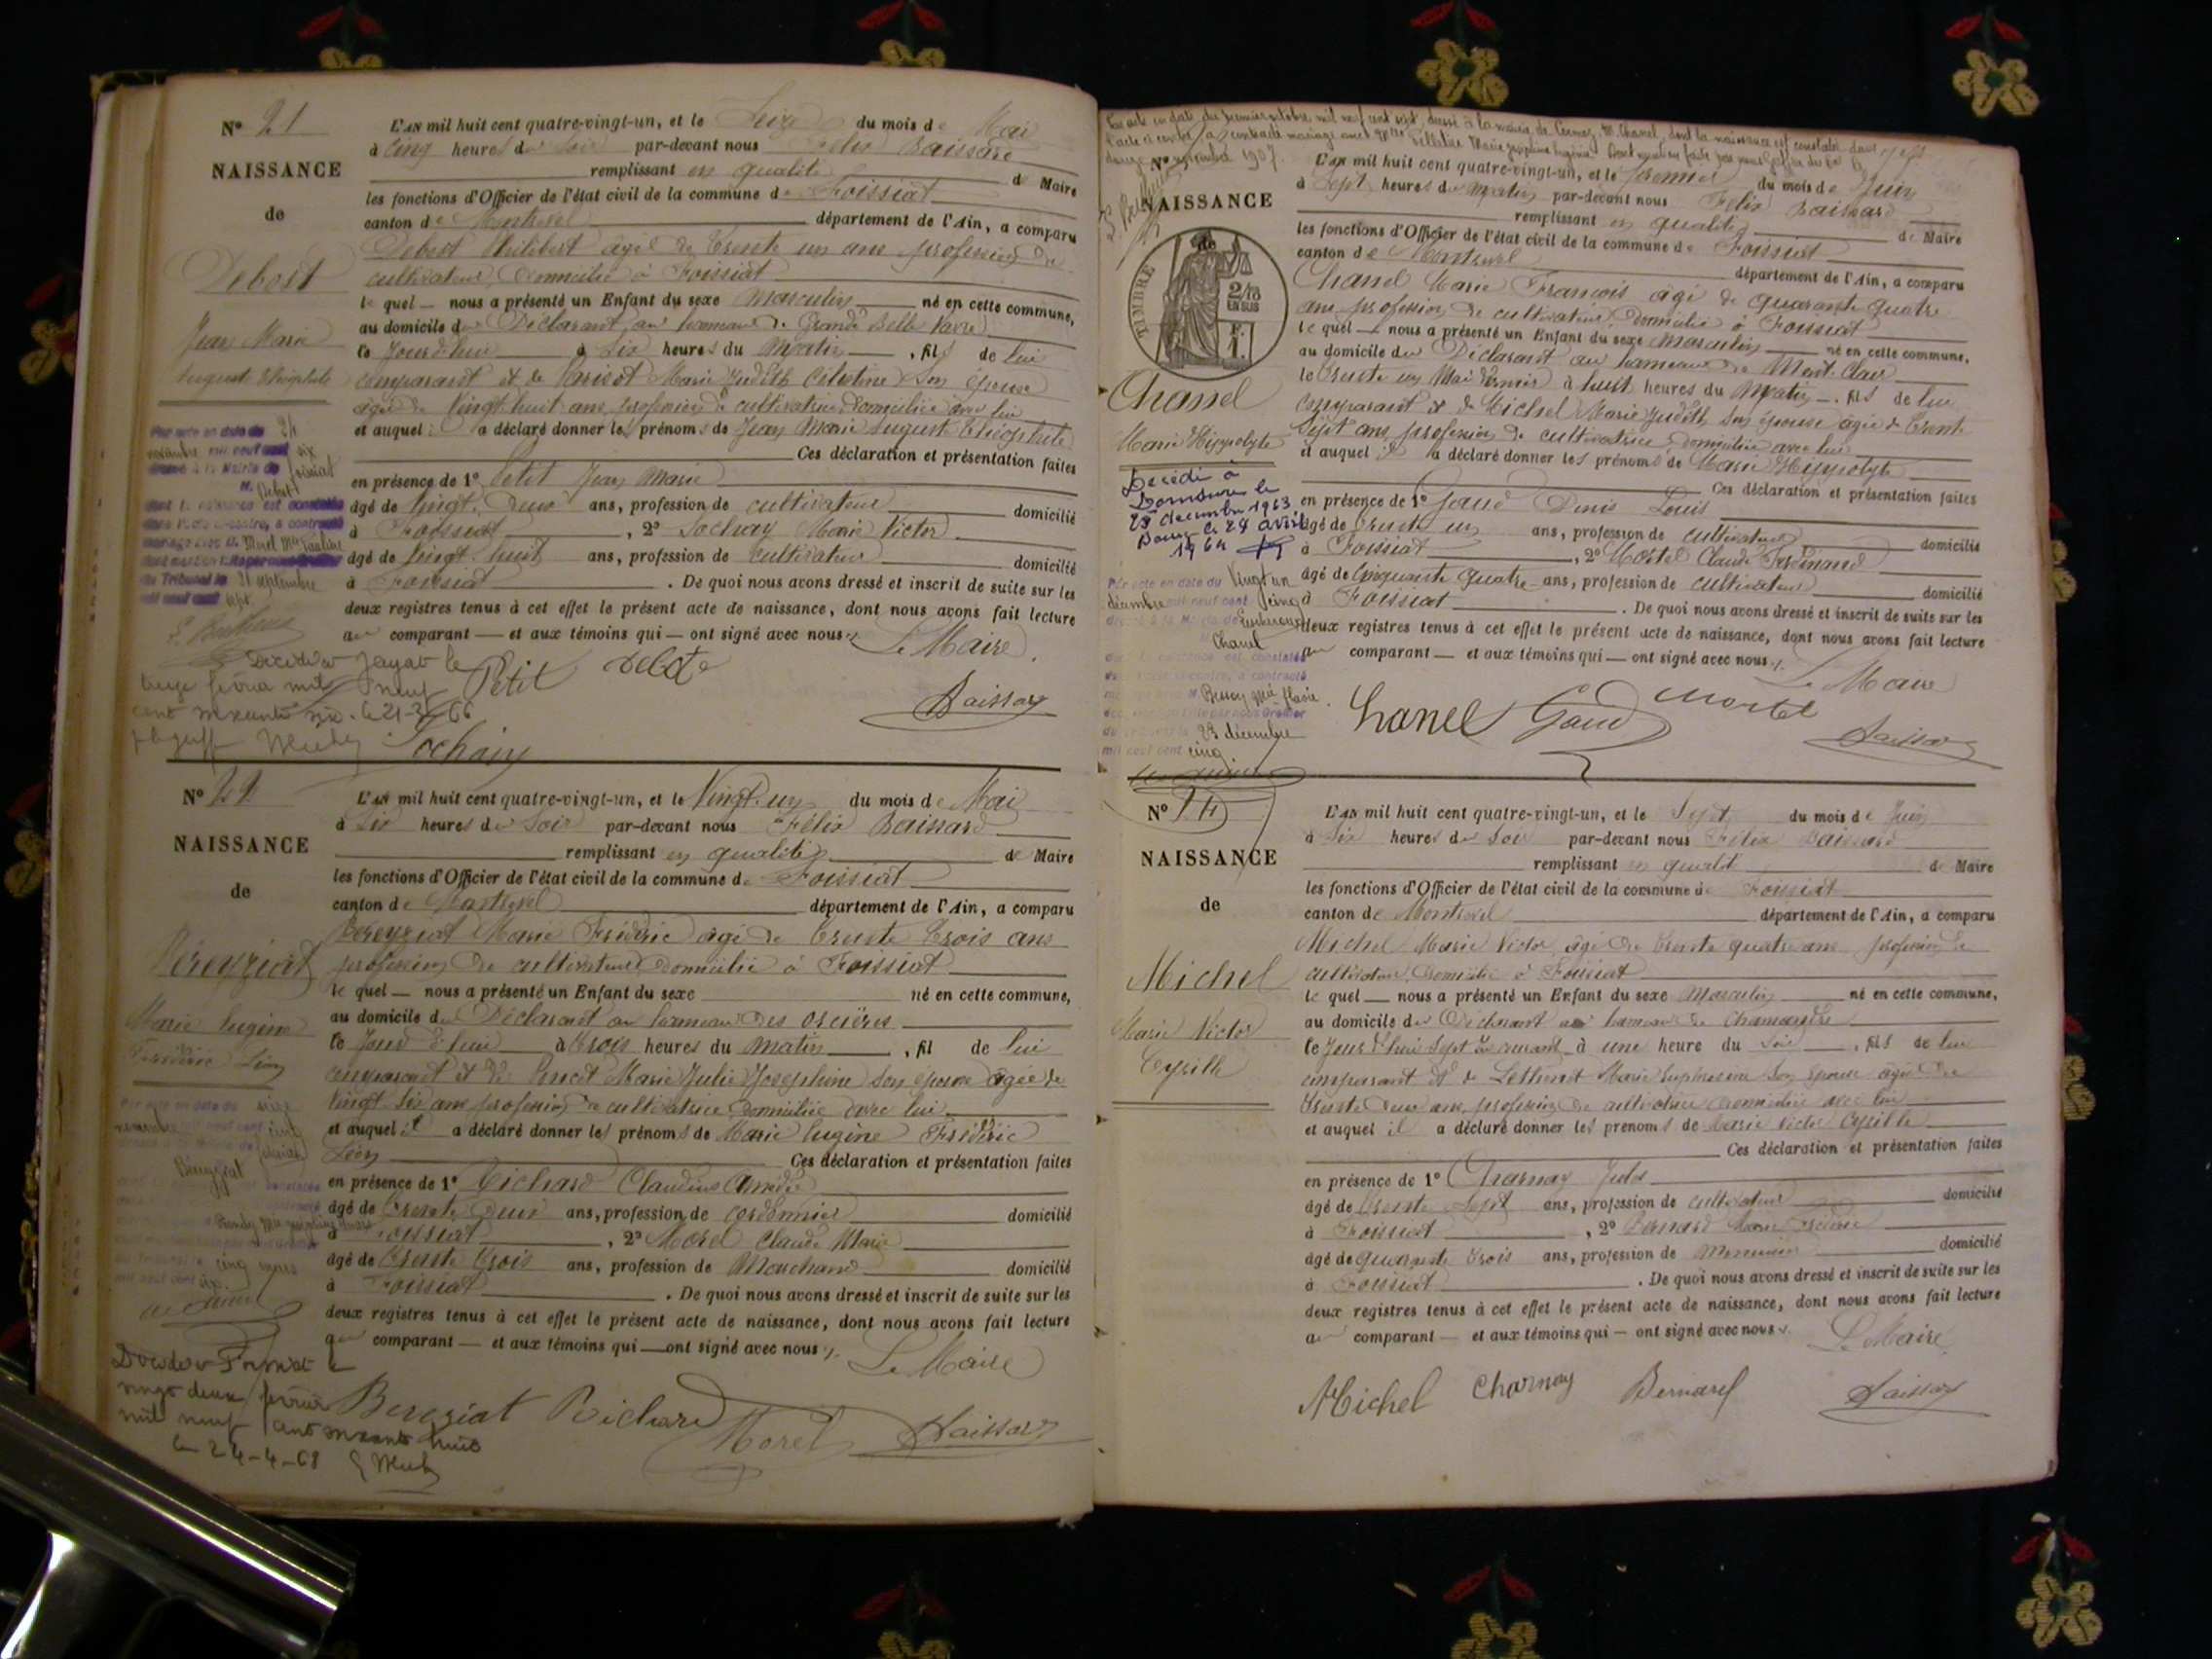 N° 21
NAISSANCE
de
Debost
Jean Marie
August Théophile
L'AN mil huit cent quatre-vingt-un, et le Seize du mois de Mai
à Cinq heures du Soir par-devant nous Félix Baissard
remplissant en qualité de Maire
les fonctions d'Officier de l'état civil de la commune de Foissiat
canton de Montrevel département de l'Ain, a comparu
Debost Philibert âgé de Trente un ans profession de
cultivateur domicilié à Foissiat
le quel — nous a présenté un Enfant du sexe Masculin né en cette commune,
au domicile du Déclarant au hameau de Grande Belle Vavre
le Jourd'hui à Six heures du Matin, fils de lui
comparant et de Marie Judith Célestine son épouse
âgée de Vingt huit ans, profession de cultivatrice domiciliée avec lui
et auquel a déclaré donner les prénoms de Jean Marie August Théophile
Ces déclaration et présentation faites
en présence de 1° Petit Jean Marie
âgé de Vingt Deux ans, profession de cultivateur domicilié
à Foissiat, 2° Sochay Marie Victor
âgé de Vingt huit ans, profession de cultivateur domicilié
à Foissiat. De quoi nous avons dressé et inscrit de suite sur les
deux registres tenus à cet effet le présent acte de naissance, dont nous avons fait lecture
au comparant — et aux témoins qui — ont signé avec nous.
Le Maire
Petit Debost
Baissard
Sochay
Par acte en date du 24
novembre mil neuf cent six
dressé à la Mairie de Foissiat
M. Debost
dont la naissance est constatée
dans l'acte ci-contre, a contracté
mariage avec M. Morel Mie Pauline
du Tribunal le 21 septembre
mil neuf cent sept.
Décédé à Jayat le
treize février mil neuf
cent soixante six. le 21-3-66
N° 22
NAISSANCE
de
Béreyziat
Marie Eugène
Frédéric Léon
L'AN mil huit cent quatre-vingt-un, et le Vingt-un du mois de Mai
à Six heures du Soir par-devant nous Félix Baissard
remplissant en qualité de Maire
les fonctions d'Officier de l'état civil de la commune de Foissiat
canton de Montrevel département de l'Ain, a comparu
Béreyziat Marie Frédéric âgé de Trente Trois ans
profession de cultivateur domicilié à Foissiat
le quel — nous a présenté un Enfant du sexe né en cette commune,
au domicile du Déclarant au hameau des Orcières
le Jour d'hui à Trois heures du matin, fil de lui
comparant et de Marie Julie Joséphine son épouse âgée de
Vingt Six ans profession de cultivatrice domiciliée avec lui
et auquel il a déclaré donner les prénoms de Marie Eugène Frédéric
Léon Ces déclaration et présentation faites
en présence de 1° Richard Claudius Amédée
âgé de Trente Deux ans, profession de cordonnier domicilié
à Foissiat, 2° Morel Claude Marie
âgé de Trente Trois ans, profession de Marchand domicilié
à Foissiat. De quoi nous avons dressé et inscrit de suite sur les
deux registres tenus à cet effet le présent acte de naissance, dont nous avons fait lecture
au comparant — et aux témoins qui — ont signé avec nous.
Le Maire
Bereziat Richard
Morel Baissard
Par acte en date du seize
novembre mil neuf cent cinq
Béreyziat
Décédé à Foissiat le
vingt deux février
mil neuf cent soixante huit
le 24-4-68
Par acte en date du premier octobre mil neuf cent sept, dressé à la mairie de M. Chanel, dont la naissance est constatée dans
l'acte ci-contre, a contracté mariage avec Melle Pelletier Marie Joséphine Eugénie
novembre 1907.
N°
NAISSANCE
de
TIMBRE
2/10
EN SUS
F.
1.
Chanel
Marie Hippolyte
L'AN mil huit cent quatre-vingt-un, et le premier du mois de Juin
à Sept heures du matin par-devant nous Félix Baissard
remplissant en qualité de Maire
les fonctions d'Officier de l'état civil de la commune de Foissiat
canton de Montrevel département de l'Ain, a comparu
Chanel Marie François âgé de quarante quatre
ans profession de cultivateur domicilié à Foissiat
le quel — nous a présenté un Enfant du sexe masculin né en cette commune,
au domicile du Déclarant au hameau de Mont-Clair
le Trente un Mai dernier à huit heures du Matin, fils de lui
comparant et de Michel Marie Judith son épouse âgée de Trente
Sept ans, profession de cultivatrice, domiciliée avec lui
et auquel il a déclaré donner les prénoms de Marie Hippolyte
Ces déclaration et présentation faites
en présence de 1° Gaud Denis Louis
âgé de Trente un ans, profession de cultivateur domicilié
à Foissiat, 2° Mortel Claude Ferdinand
âgé de Cinquante quatre ans, profession de cultivateur domicilié
à Foissiat. De quoi nous avons dressé et inscrit de suite sur les
deux registres tenus à cet effet le présent acte de naissance, dont nous avons fait lecture
au comparant — et aux témoins qui — ont signé avec nous.
Le Maire
Chanel Gaud Mortel
Baissard
Décédé à
Domsure le
25 décembre 1963
Bourg le 28 avril
1964
Par acte en date du Vingt un
décembre mil neuf cent cinq
Chanel
23 décembre
mil neuf cent cinq
N° 24
NAISSANCE
de
Michel
Marie Victor
Cyrille
L'AN mil huit cent quatre-vingt-un, et le Sept du mois de Juin
à Six heures du Soir par-devant nous Félix Baissard
remplissant en qualité de Maire
les fonctions d'Officier de l'état civil de la commune de Foissiat
canton de Montrevel département de l'Ain, a comparu
Michel Marie Victor âgé de Trente quatre ans profession de
cultivateur domicilié à Foissiat
le quel — nous a présenté un Enfant du sexe Masculin né en cette commune,
au domicile du Déclarant au hameau de Chamandre
le Jourd'hui Sept du courant à une heure du Soir, fils de lui
comparant et de Marie Euphrosine son épouse âgée de
Trente Deux ans, profession de cultivatrice domiciliée avec lui
et auquel il a déclaré donner les prénoms de Marie Victor Cyrille
Ces déclaration et présentation faites
en présence de 1° Charnay Jules
âgé de Trente Sept ans, profession de cultivateur domicilié
à Foissiat, 2° Bernard Marie Frédéric
âgé de quarante Trois ans, profession de Menuisier domicilié
à Foissiat. De quoi nous avons dressé et inscrit de suite sur les
deux registres tenus à cet effet le présent acte de naissance, dont nous avons fait lecture
au comparant — et aux témoins qui — ont signé avec nous.
Le Maire
Michel Charnay Bernard Baissard